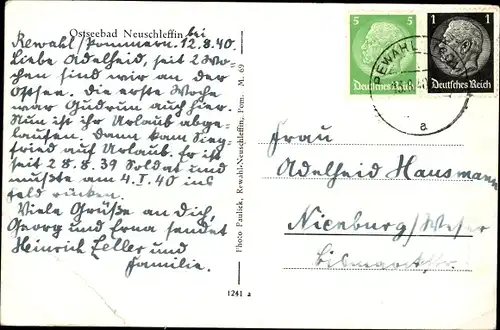 Ostseebad Neuschleffin bei
Rewahl/Pommern. 12.8.40.
Liebe Adelheid, seit 2 Wo-
chen sind wir an der
Ostsee. die erste Woche
war Gudrun auch hier.
Nun ist ihr Urlaub abge-
laufen. Dann kam Sieg-
fried auf Urlaub. Er ist
seit 28.8.39 Soldat und
mußte am 4.I.40 ins
Feld rücken.
Viele Grüße an dich,
Georg und Erna sendet
Heinrich Zeller und
Familie.
1241 a
Photo Paulick, Rewahl-Neuschleffin, Pom. M. 69
5 5
Deutsches Reich
1 1
Deutsches Reich
REWAHL
a
Frau
Adelheid Hausmann
Nienburg/Weser
Bismarckstr.